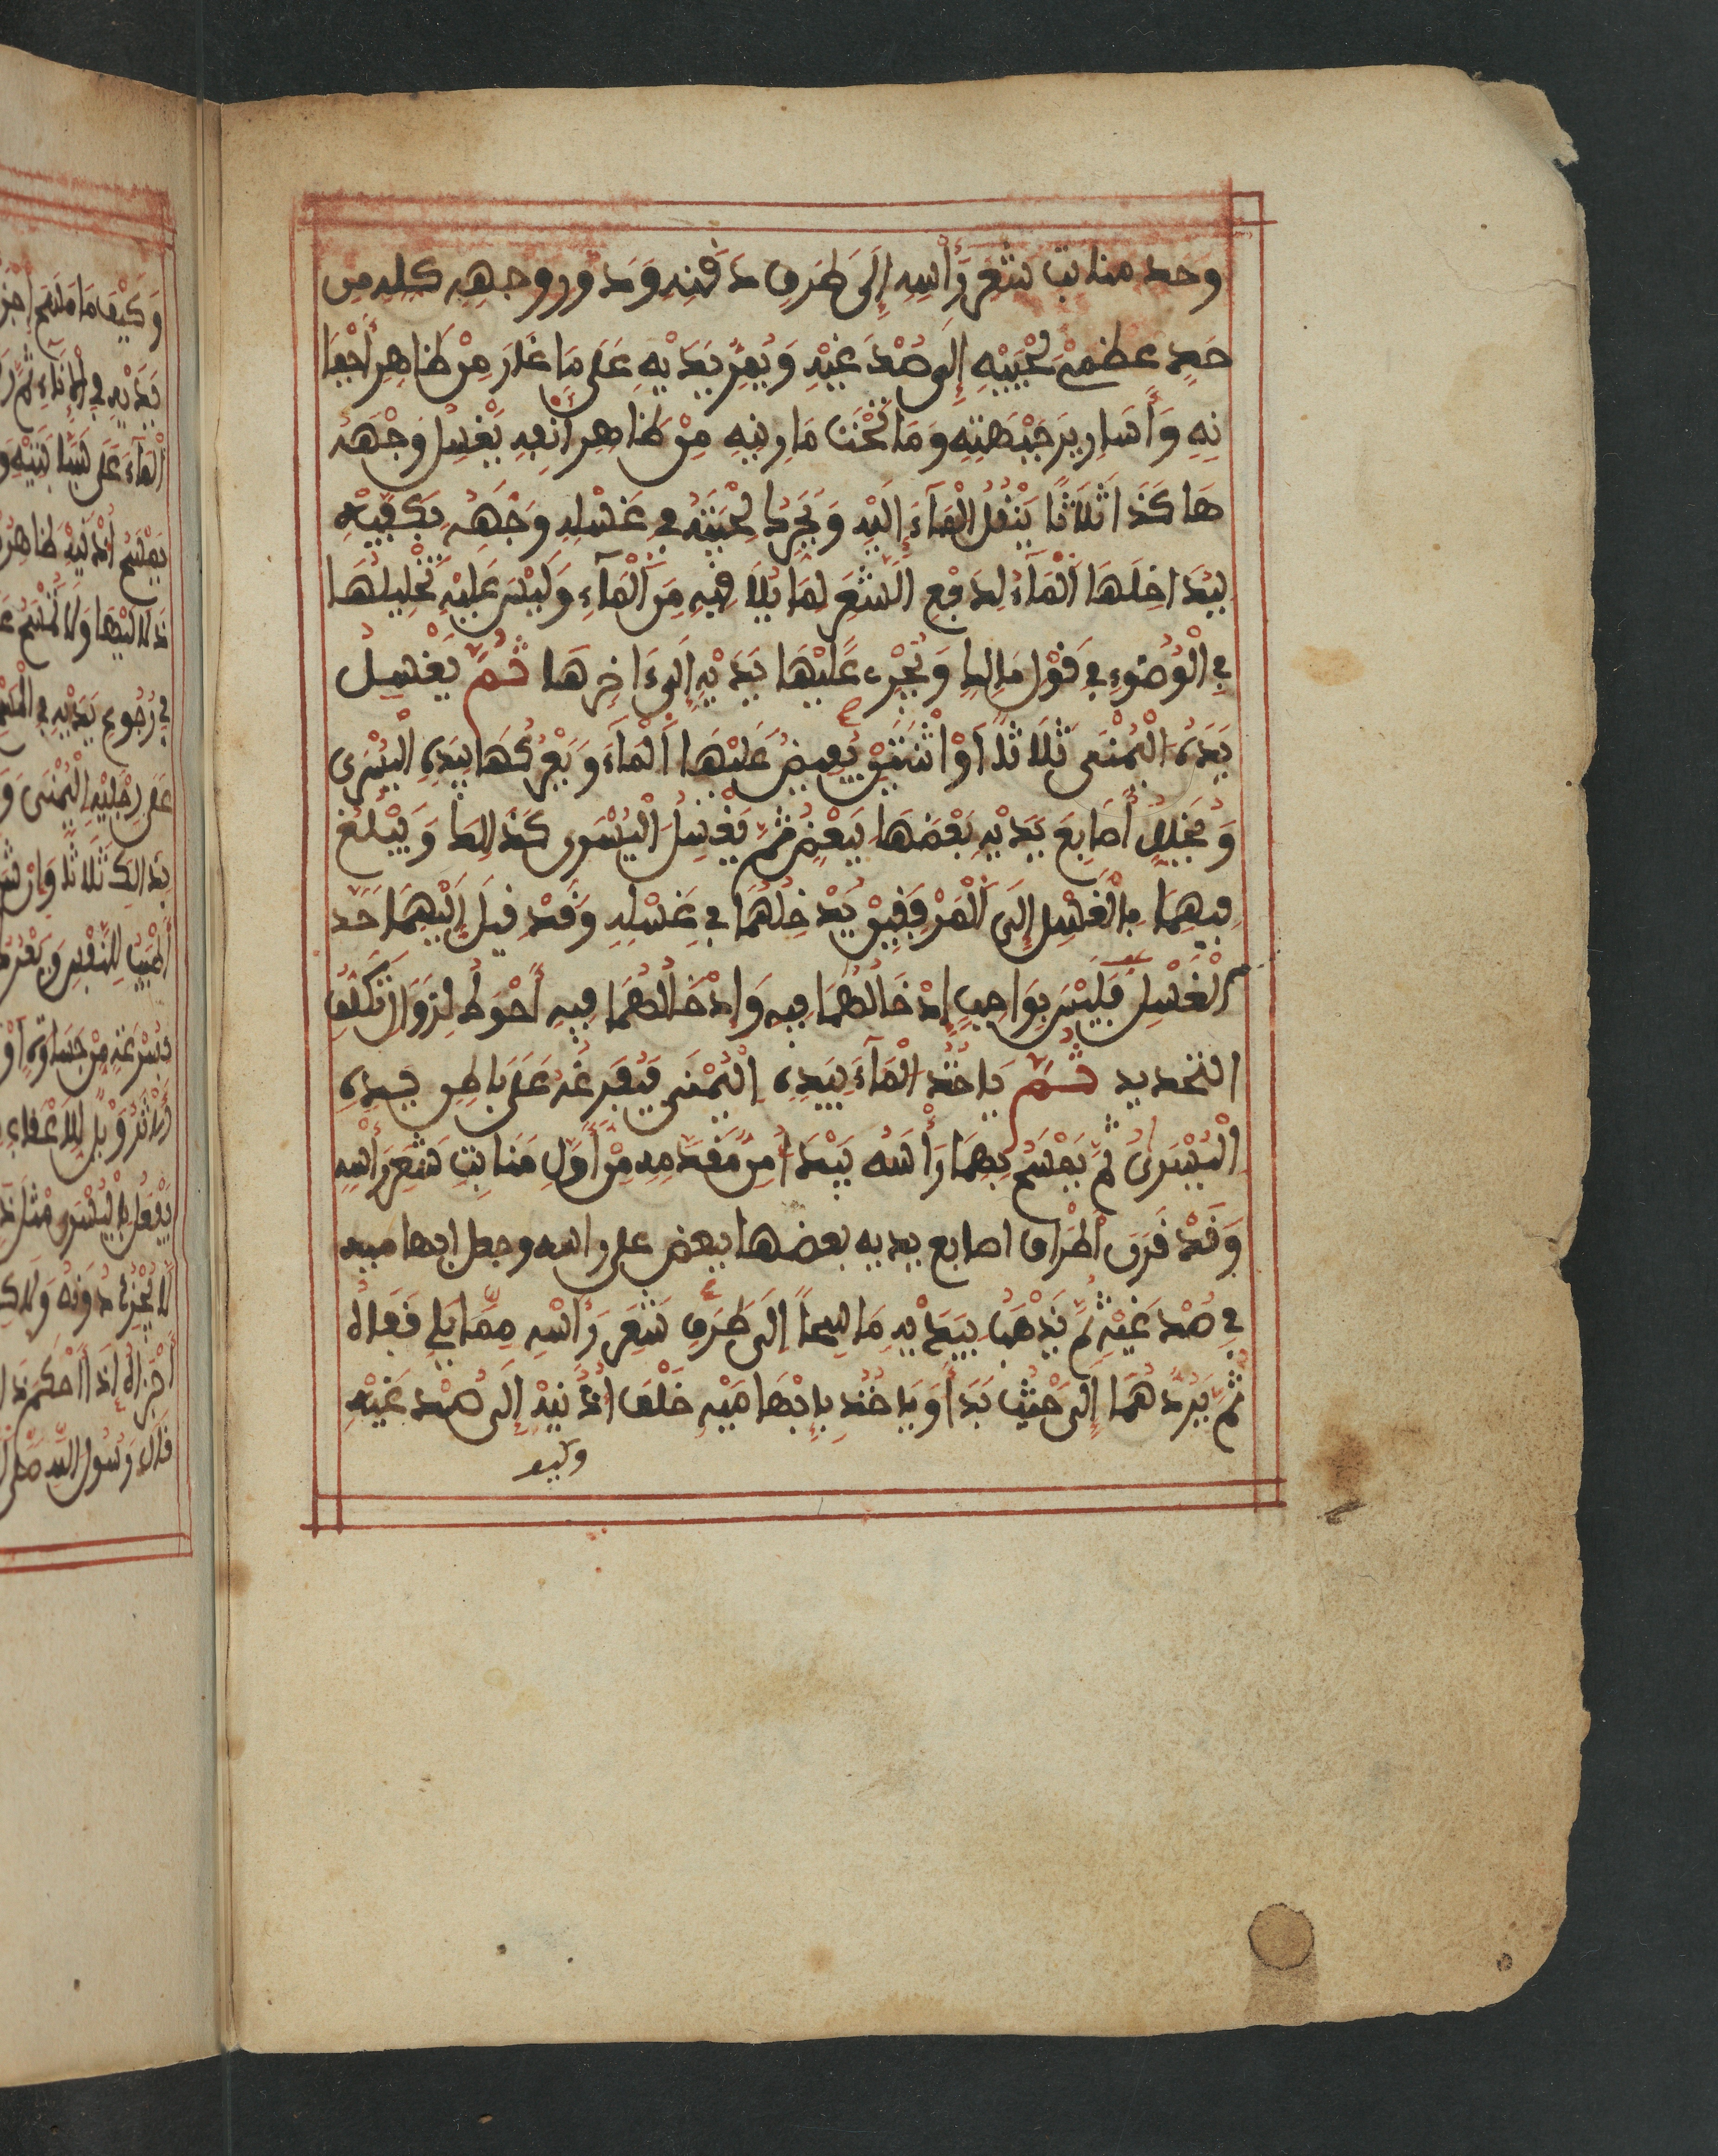 وحد منابت شعر رأسه إلى طرف دقنه ودور وجهه كله من
حد عظمي لحييه إلى صدغيه ويمر يديه على ما غار من ظاهر أجفا
نه وأسارير جبهته وما تحت مارنه من ظاهر أنفه يغسل وجهه
هاكذا ثلاثا ينقل الماء إليه ويحرك لحيته في غسله وجهه بكفيه
ليداخلها الماء لدفع الشعر لما يلاقيه من الماء وليس عليه تخليلها
في الوضوء في قول مالك ويجرى عليها يديه إلى ءاخرها ثم يغسل
يده اليمنى ثلاثا أو اثنتين يفيض عليها الماء ويعركها بيده اليسرى
ويخلل أصابع يديه بعضها ببعض ثم يغسل اليسرى كذالك ويبلغ
فيهما بالغسل إلى المرفقين يدخلهما في غسله وقد قيل إليهما حد
الغسل فليس بواجب إدخالهما فيه وإدخالهما فيه أحوط لزوال تكلف
التحديد ثم ياخذ الماء بيده اليمنى فيفرغه على باطن يده
اليسرى ثم يمسح بهما رأسه يبدأ من مقدمه من أول منابت شعر رأسه
وقد قرن أطراف اصابع يديه بعضها ببعض على راسه وجعل ابهاميه
في صدغيه ثم يذهب بيديه ماسحا إلى طرف شعر رأسه مما يلي قفاه
ثم يردهما إلى حيث بدأ وياخذ بإبهاميه خلف أذنيه إلى صدغيه
وكيف
وكيف ما مسح أجز
يديه في الإناء ثم ر
الماء على سبابتيه و
يمسح أذنيه ظاهر
في رجوع يديه في المسح
على رجليه اليمنى و
بذالك ثلاثا وإن ش
أطيب للنفس ويعرك
قال رسول الله صلى